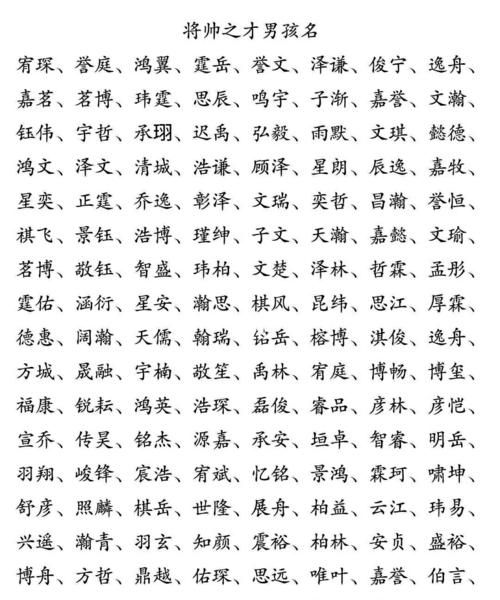 将帅之才男孩名
宥琛、誉庭、鸿翼、霆岳、誉文、泽谦、俊宁、逸舟、
嘉茗、茗博、玮霆、思辰、鸣宇、子渐、嘉誉、文瀚、
钰伟、宇哲、承珝、迟禹、弘毅、雨默、文琪、懿德、
鸿文、泽文、清城、浩谦、顾泽、星朗、辰逸、嘉牧、
星奕、正霆、乔逸、彰泽、文瑞、奕哲、昌瀚、誉恒、
祺飞、景钰、浩博、瑾绅、子文、天瀚、嘉懿、文瑜、
茗博、敬钰、智盛、玮柏、文楚、泽林、哲霖、孟彤、
霆佑、涵衍、星安、瀚思、棋风、昆纬、思江、厚霖、
德惠、阔瀚、天儒、翰瑞、岳、榕博、淇俊、逸舟、
方城、晟融、宇楠、敬笙、禹林、宥庭、博畅、博玺、
福康、锐耘、鸿英、浩琛、磊俊、睿品、彦林、彦恺、
宣乔、传昊、铭杰、源嘉、承安、垣卓、智睿、明岳、
羽翔、峻锋、宸浩、宥斌、忆铭、景鸿、霖珂、啸坤、
舒彦、照麟、棋岳、世隆、展舟、柏益、云江、玮易、
兴遥、瀚青、羽玄、知颜、震裕、柏林、安贞、盛裕、
博舟、方哲、鼎越、佑琛、思远、唯叶、嘉誉、伯言、